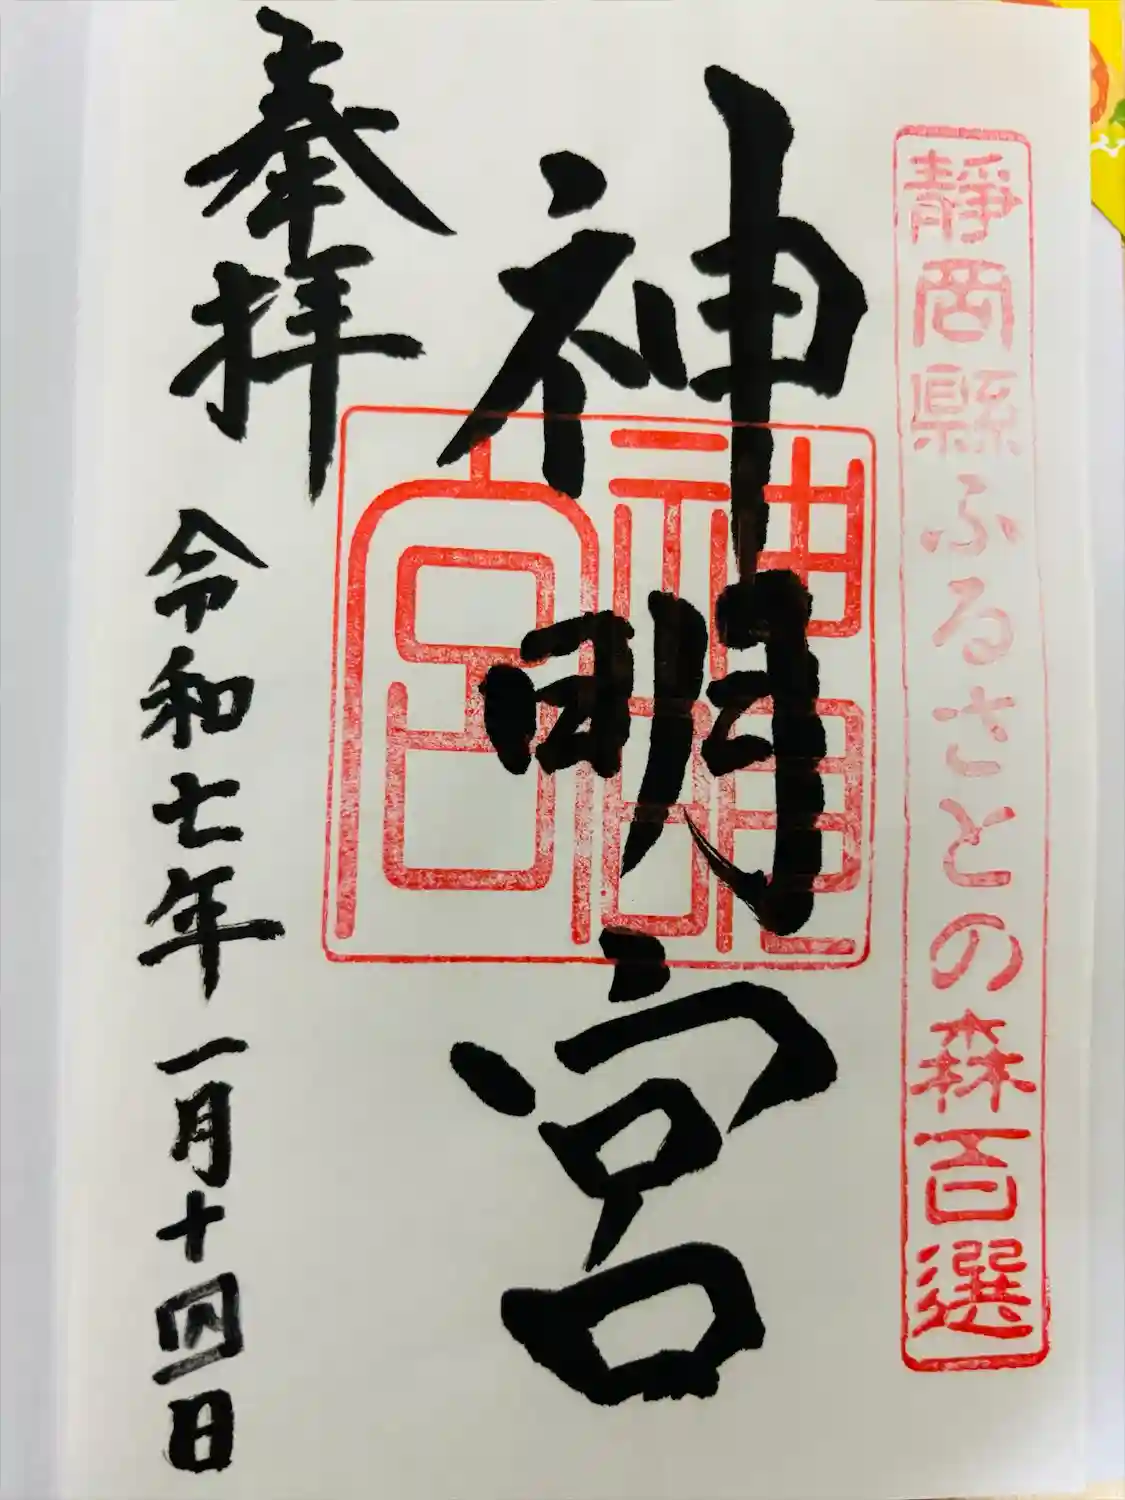 靜岡縣ふるさとの森百選
神明宮
奉拝
令和七年一月十四日